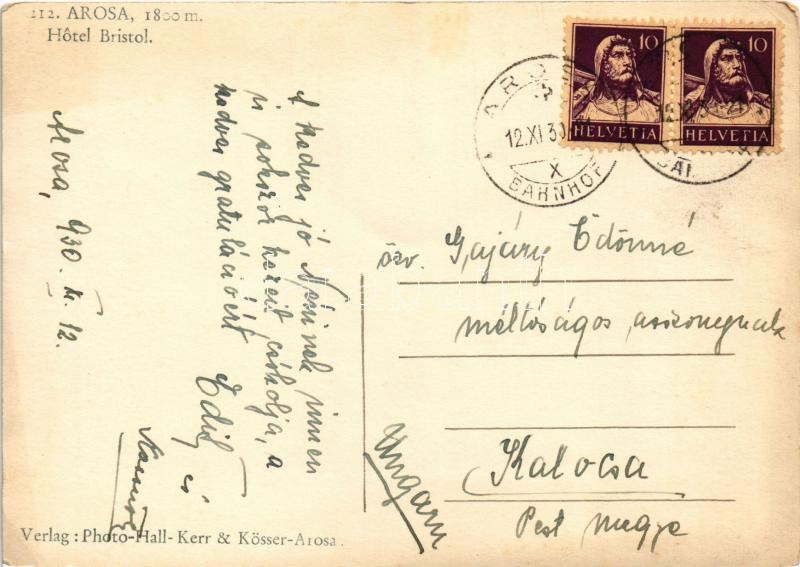 212. AROSA, 1800 m.
Hôtel Bristol.
Arosa, 930. XI. 12.
A kedves jó Neninek innen
is sokszor kezeit csókolja, a
kedves gratulációért
Edit és
10 HELVETIA
10 HELVETIA
AROSA
12.XI.30
X
BAHNHOF
özv. Gajáry Ödönné
méltóságos asszonynak
Kalocsa
Pest megye
Ungarn
Verlag : Photo-Hall-Kerr & Kösser-Arosa.